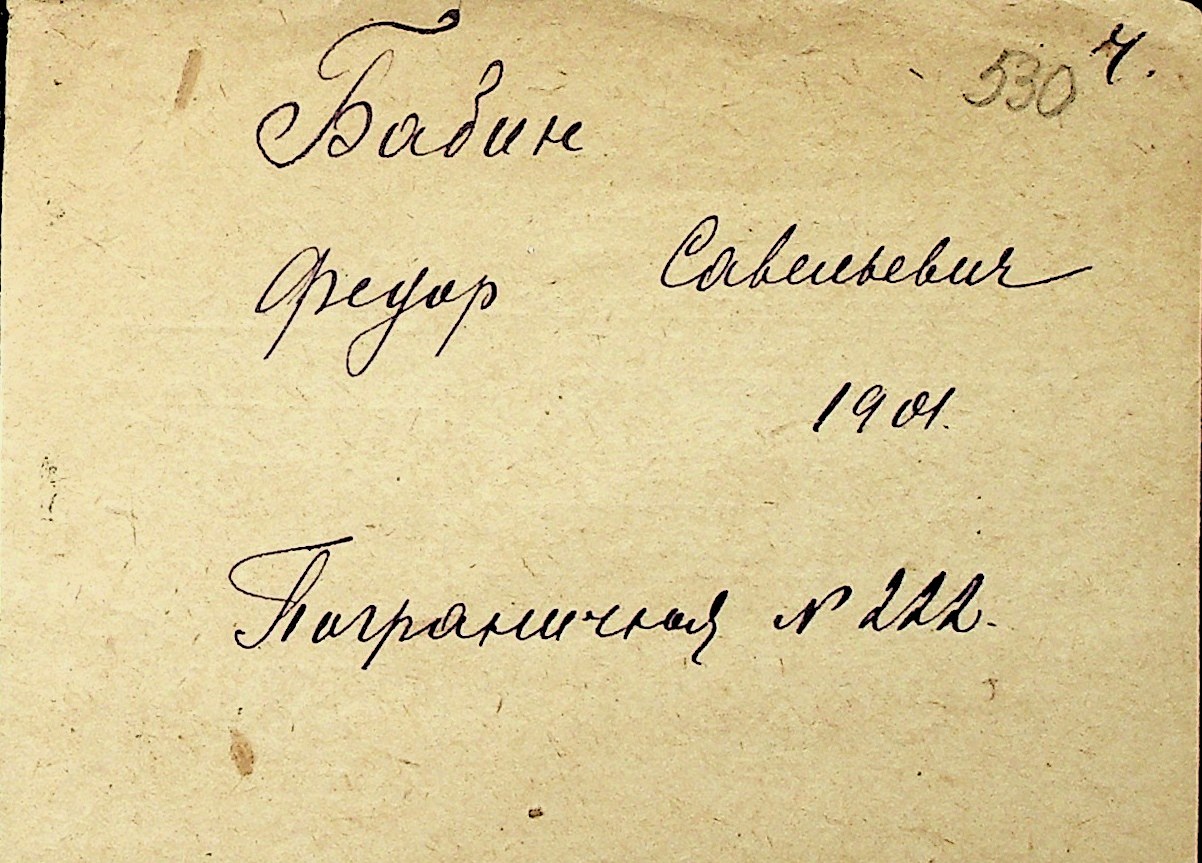 530 4.
Бабин
Федор Савельевич
1901.
Пограничная № 222.